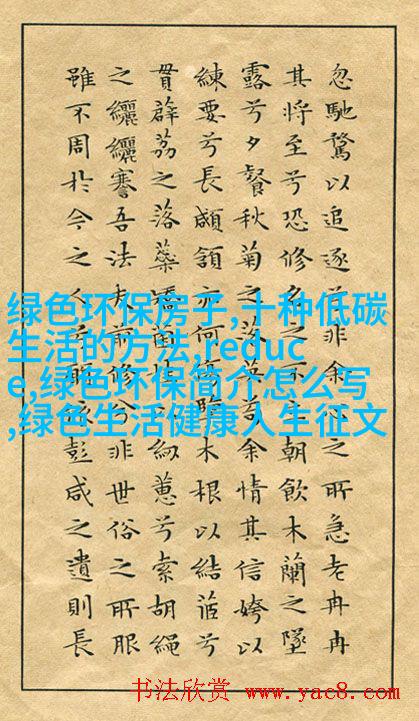 忽馳騖以追逐兮非余心之所急老冉冉
其將至兮恐修名之不立朝飲木蘭之墜
露兮夕餐秋菊之落英苟余情其信姱以
練要兮長顑頷亦何傷擥木根以結茝兮
貫薜荔之落蘂矯菌桂以紉蕙兮索胡繩
之纚纚謇吾法夫前修兮非世俗之所服
雖不周於今之人兮願依彭咸之遺則長
绿色环保房子,十种低碳
生活的方法,reduc
e,绿色环保简介怎么写
,绿色生活健康人生征文
书法欣赏 www.yac8.com